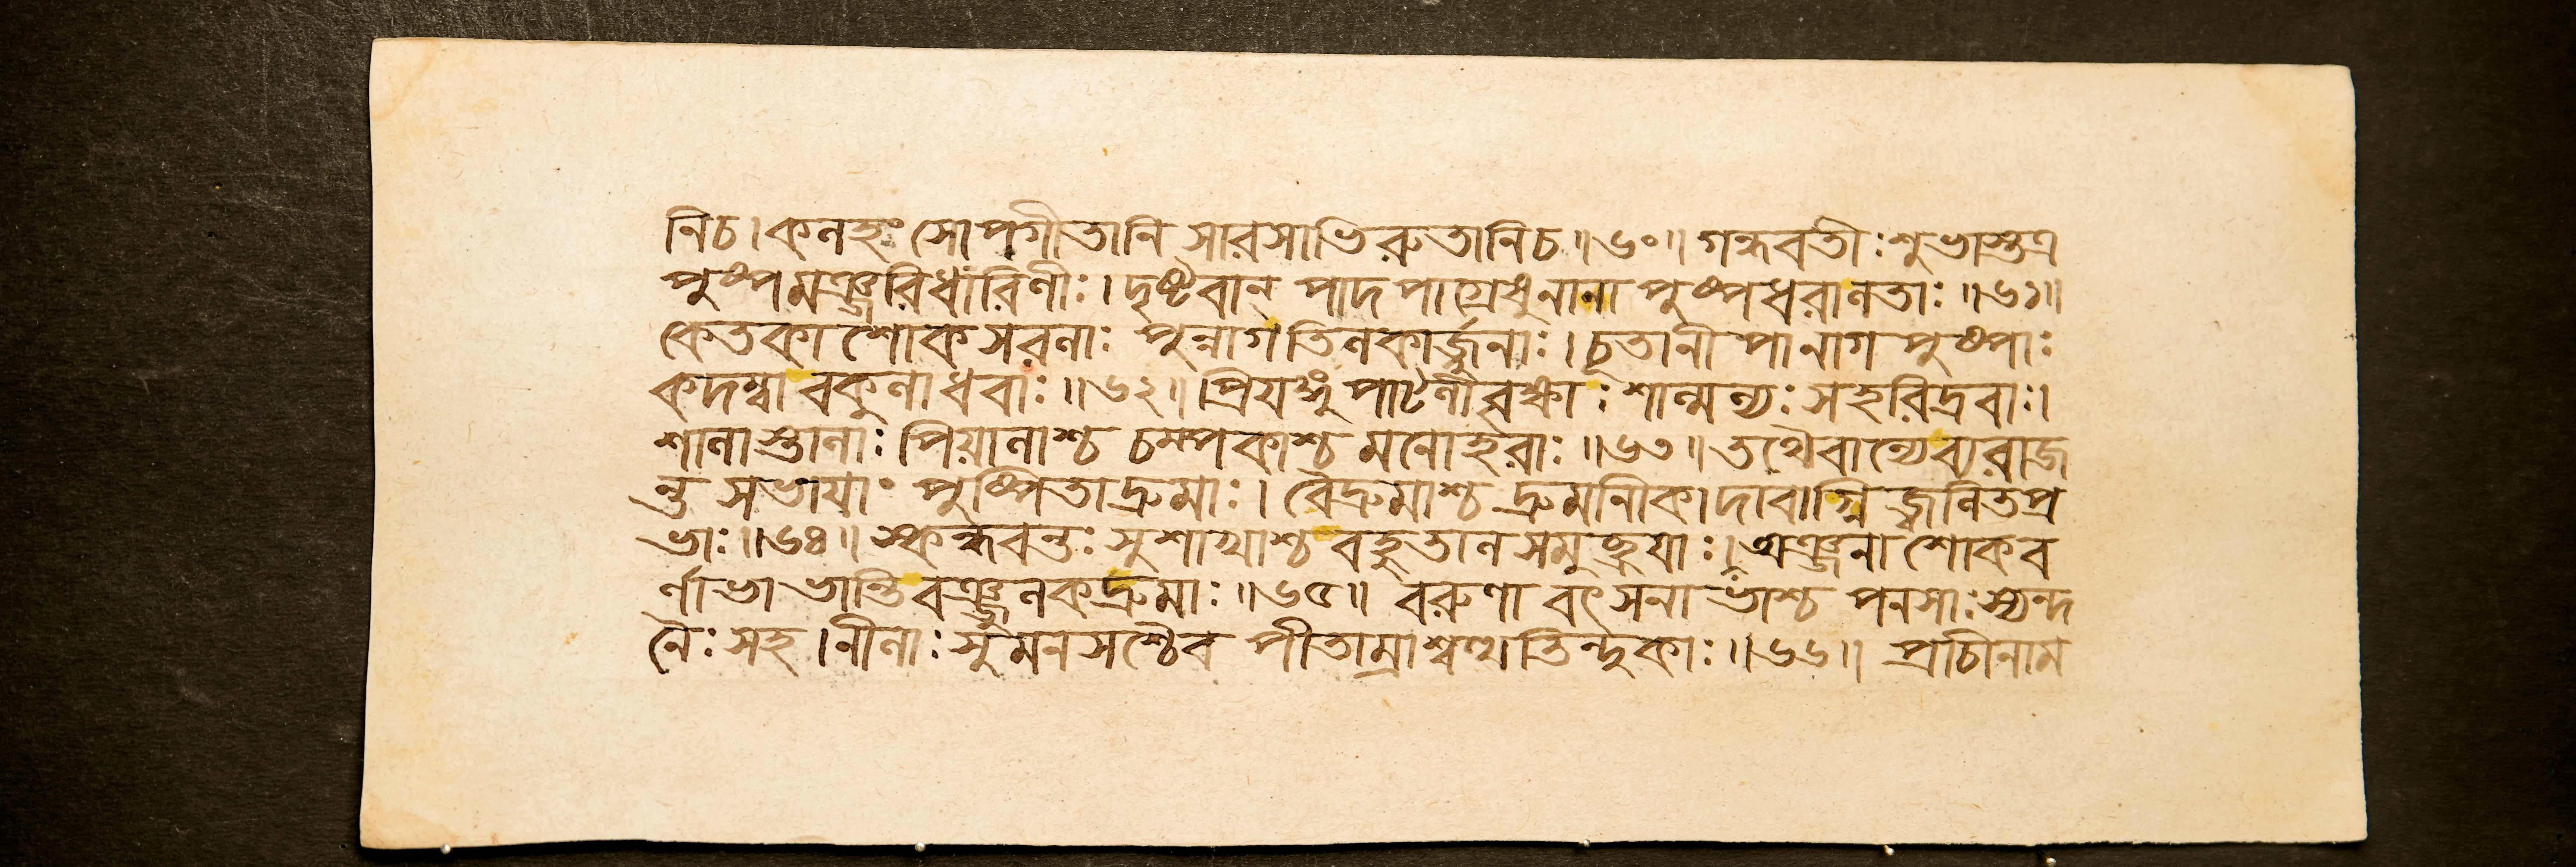 নিচ। কলহংসোপগীতানি সারসাভিরুতানিচ॥৬০॥ গন্ধবতীঃ শুভাস্তত্র
পুষ্পমঞ্জরিধারিণীঃ। দৃষ্টবান্ পাদপাগ্রেষুনানা পুষ্পধরালতাঃ॥৬১॥
কেতকাশোকসরলাঃ পুন্নাগতিলকার্জ্জুনাঃ। চূতানীপানাগপুষ্পাঃ
কদম্বাবকুলাধবাঃ॥৬২॥ প্রিযঙ্গুপাটলীবৃক্ষাঃ শাল্মল্যঃ সহরিদ্রবাঃ।
শালাস্তালাঃ পিয়ালাশ্চ চম্পকাশ্চ মনোহরাঃ॥৬৩॥ তথৈবান্যেব্যরাজ
ন্ত সভাযাং পুষ্পিতাদ্রুমাঃ। বৈদ্রুমাশ্চ দ্রুমানীকাদাবাগ্নিজ্বলিতপ্র
ভাঃ॥৬৪॥ স্কন্ধবন্তঃ সুশাখাশ্চ বহুতালসমুচ্ছ্রযাঃ। অঞ্জনাশোকব
র্ণাভাভান্তিবঞ্জুলকদ্রুমাঃ॥৬৫॥ বরুণা বৎসনাভাংশ্চ পনসাঃ স্যন্দ
নৈঃ সহ। নীলাঃ সুমনসশ্চৈব পীতাম্রাশ্বত্থতিন্দুকাঃ॥৬৬॥ প্রাচীনাম